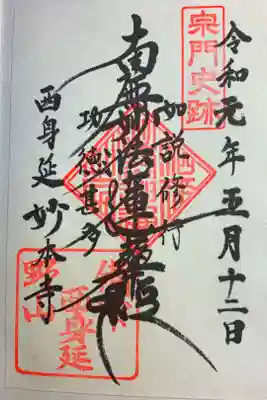 宗門史跡
令和元年五月十二日
如説修行
南無妙法蓮華経
功徳甚多
西身延 妙本寺
西身延
野山